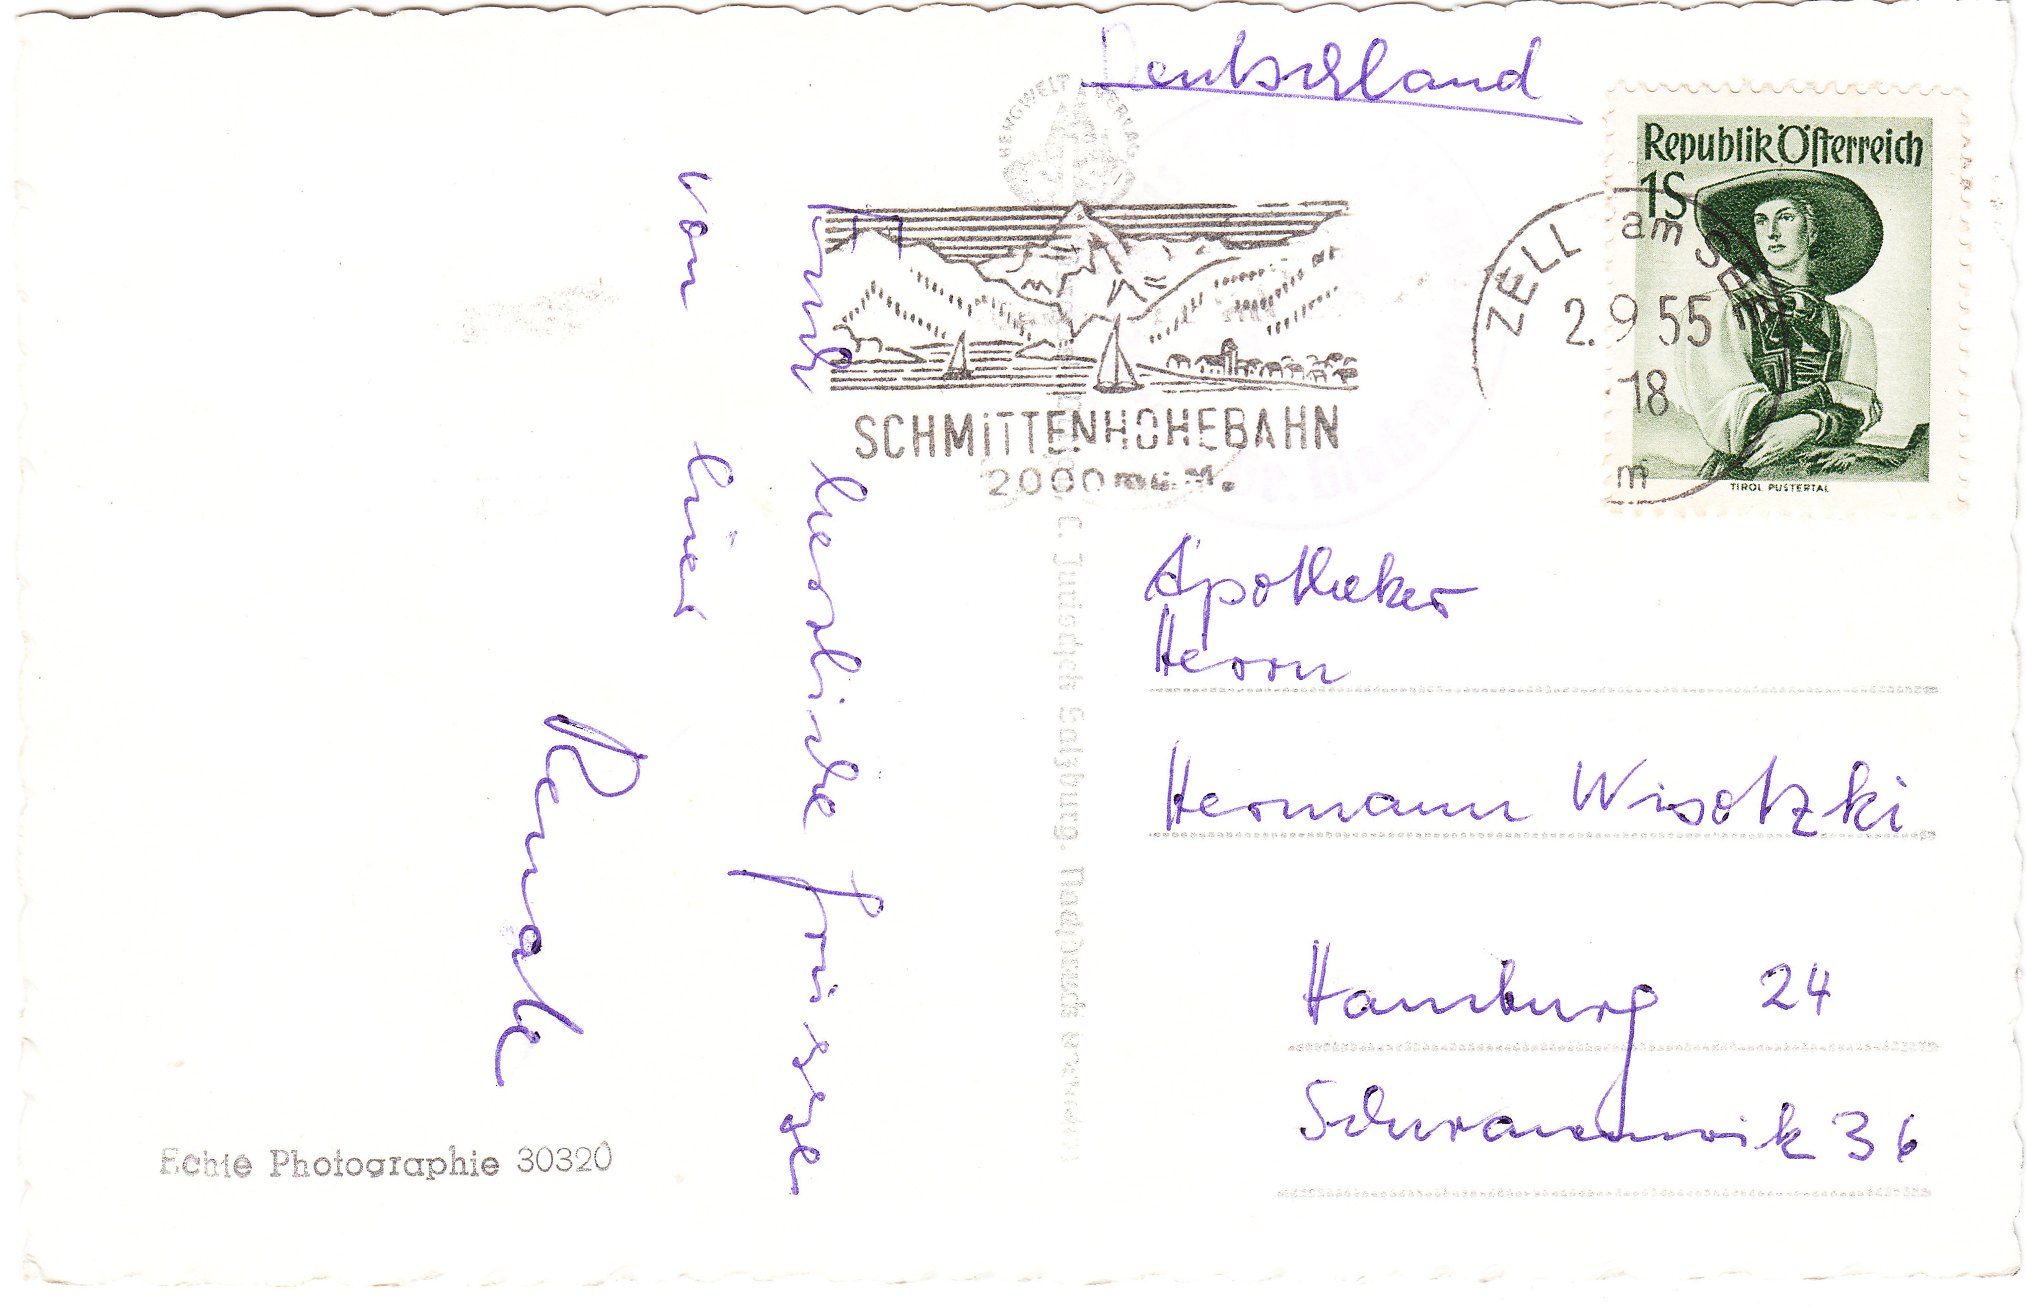 Deutschland
BERGWELT VERLAG
Republik Österreich
1S
TIROL PUSTERTAL
ZELL am SEE
2.9.55
18
SCHMITTENHÖHEBAHN
2000 m ü. M.
Auch herzliche Grüsse
von hier
Renate
C. Jurischek Salzburg. Nachdruck verboten
Apotheker
Herrn
Hermann Wisotzki
Hamburg 24
Schwanenwik 36
Echte Photographie 30320